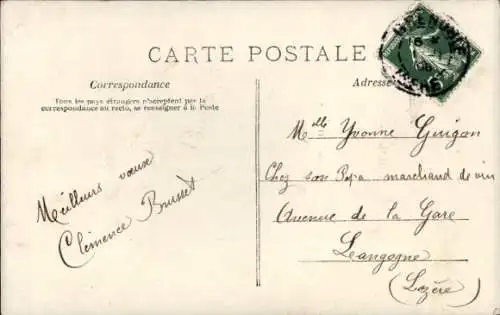 CARTE POSTALE
Correspondance
Tous les pays étrangers n'acceptent pas la
correspondance au recto, se renseigner à la Poste
Adresse
Meilleurs vœux
Clémence Brusset
Melle Yvonne Guigon
Chez son Papa marchand de vin
Avenue de la Gare
Langogne
(Lozère)